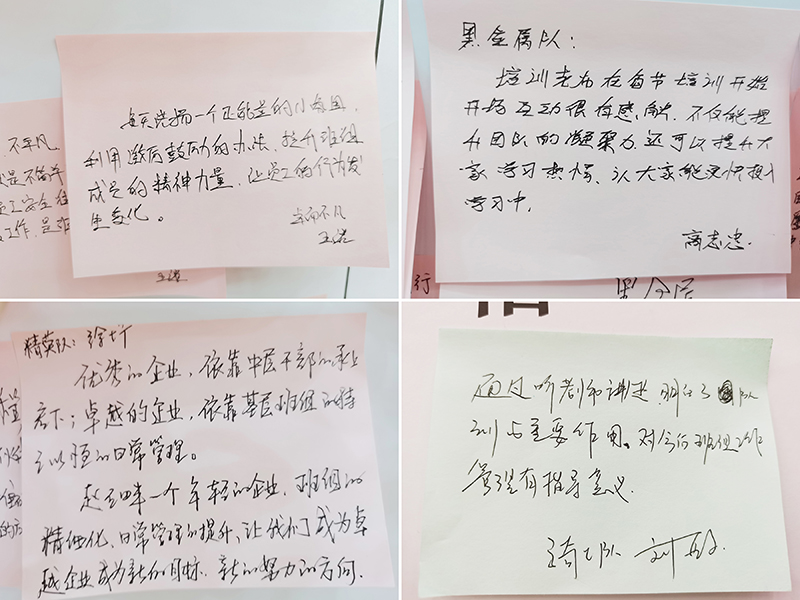 每天选择一个正能量的小氛围,
利用激励鼓励的办法、提升班组
成员的精神力量,让员工的行为发
生变化。
卓而不凡
王浩
不平凡
工作,是
王浩
黑金属队:
培训老师在首节培训开始
开场互动很有感触,不仅能提
升团队的凝聚力还可以提升大
家学习热情、让大家能更快投入
学习中。
高志忠.
行
精英队:
优秀的企业,依靠中层干部的承上
启下;卓越的企业,依靠基层班组的持
之以恒的日常管理。
一个年轻的企业,班组的
精细化、日常管理的提升、让我们成为卓
越企业成为新的目标、新的努力的方向.
通过听老师讲述,明白了队
训与重要作用。对今后班组工作
管理有指导意义.
队 刘